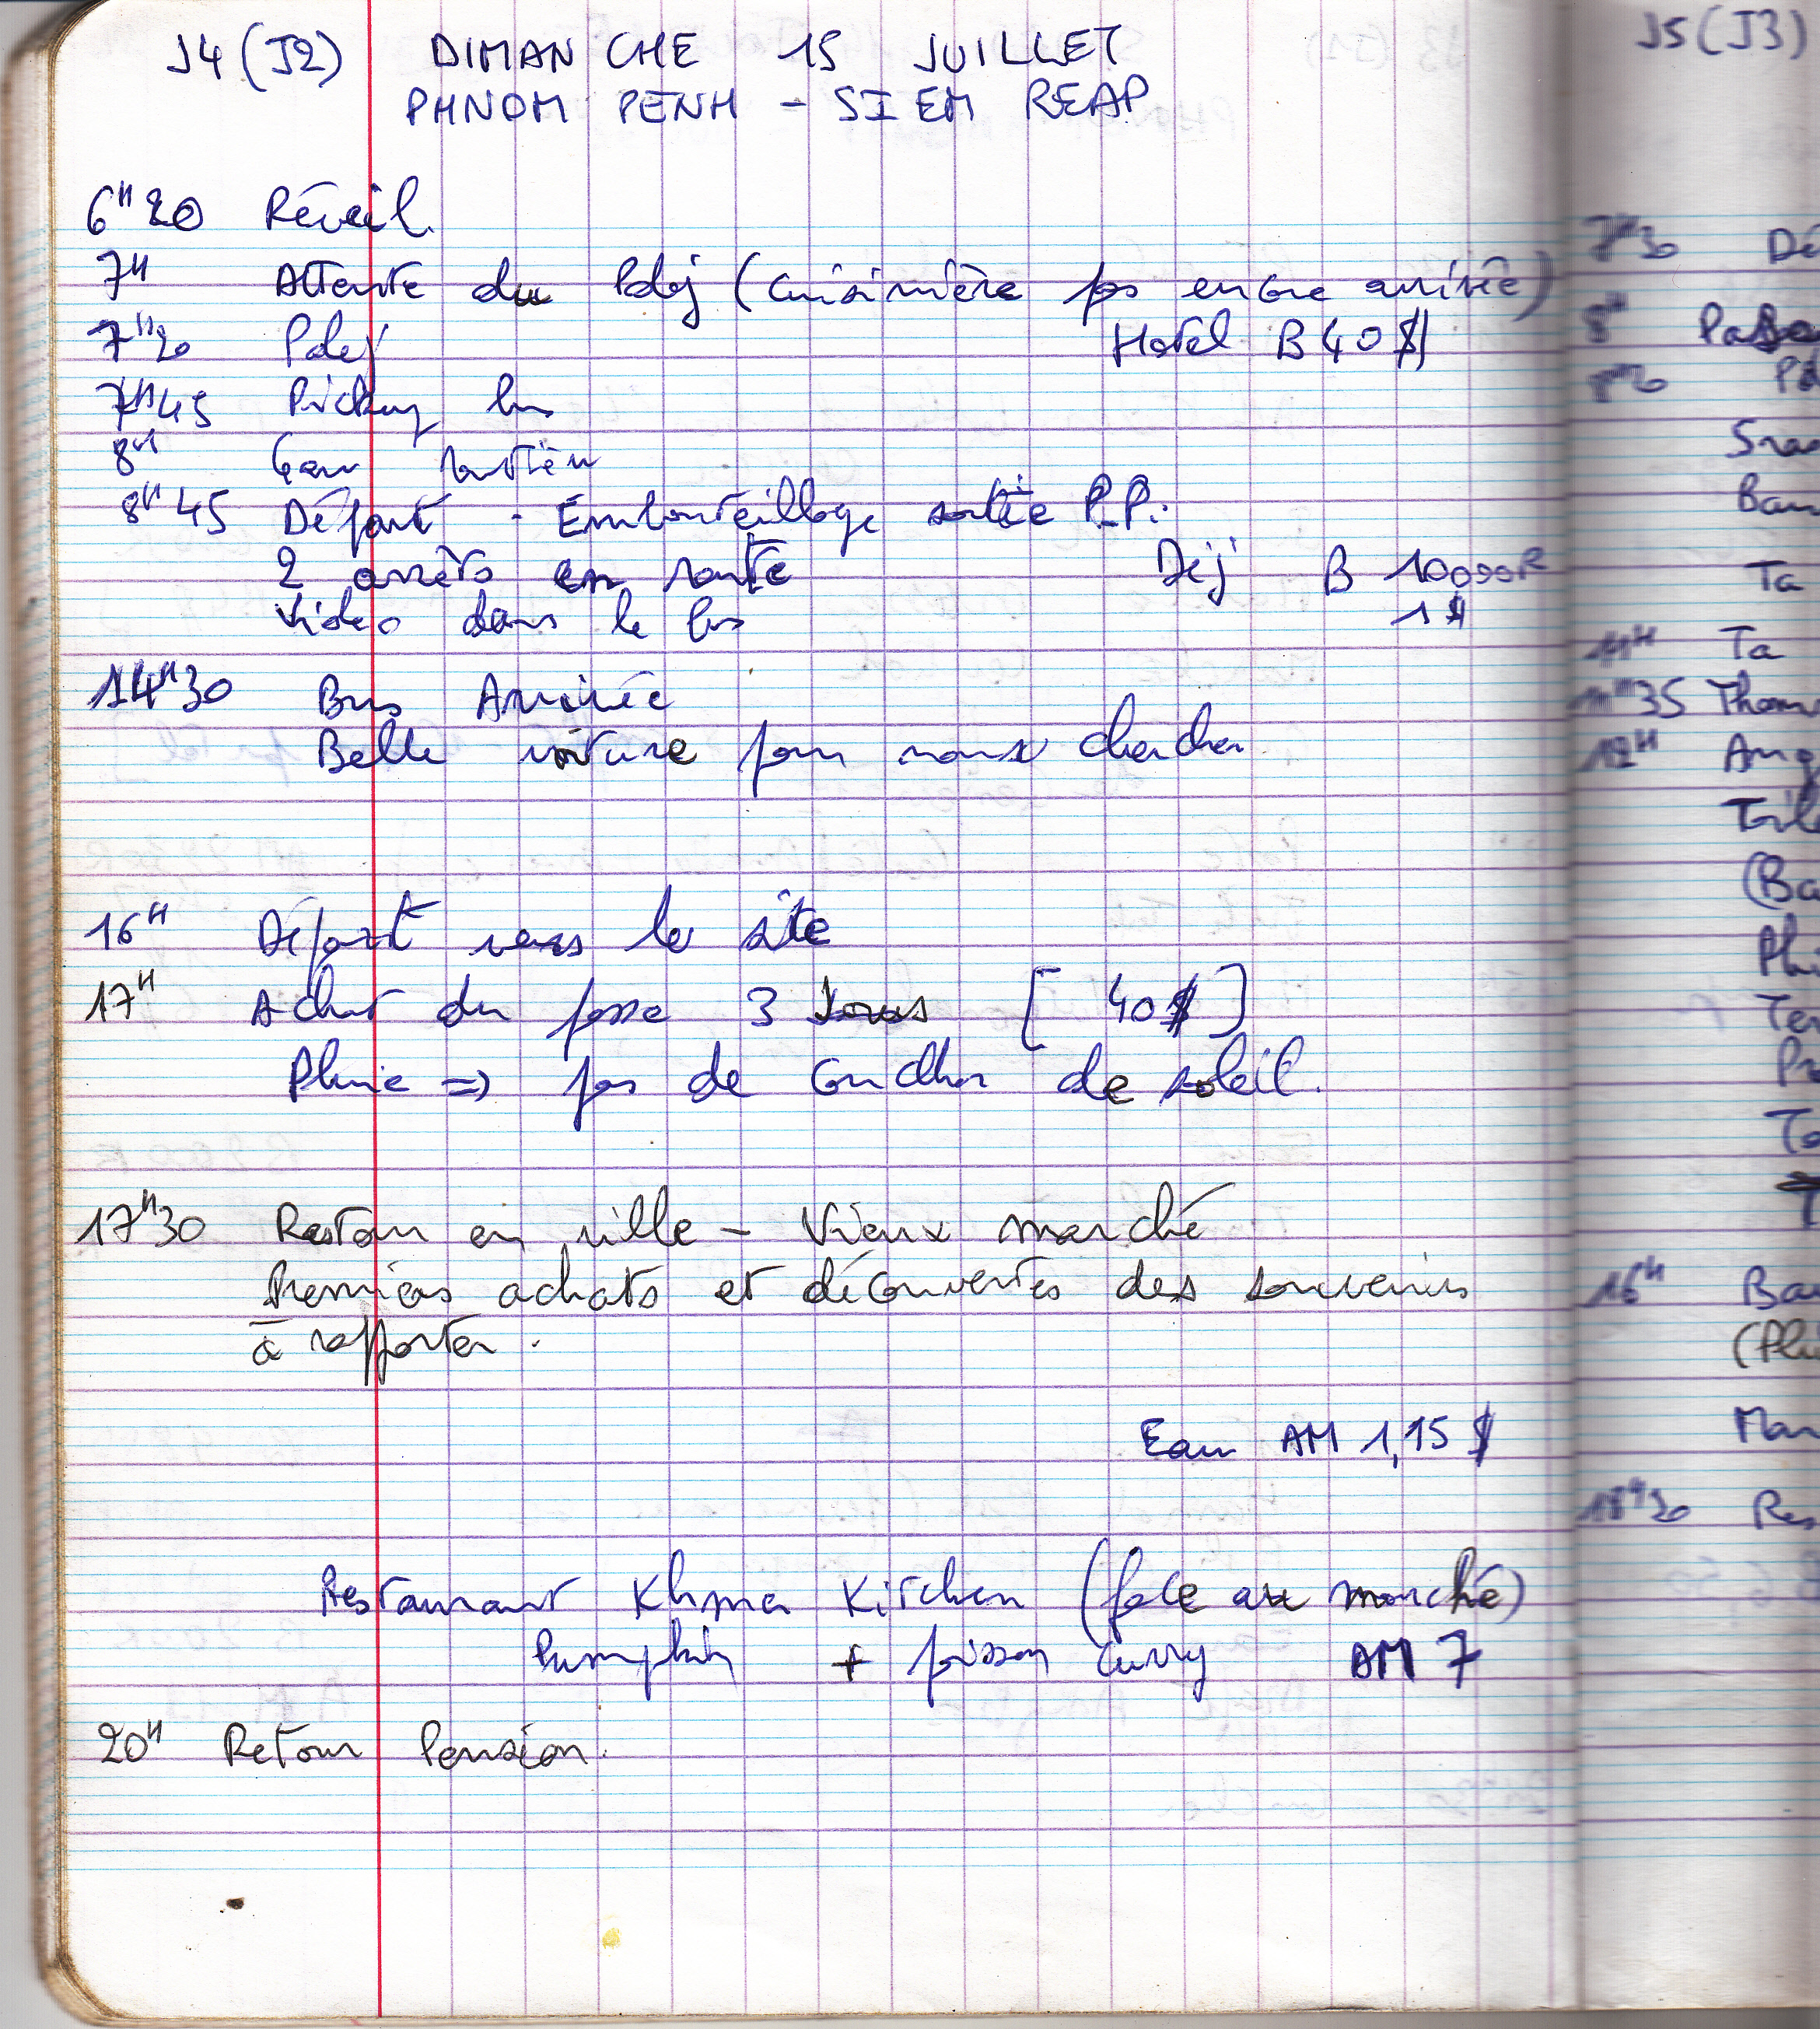 J4 (J2) DIMANCHE 15 JUILLET
PHNOM PENH - SIEM REAP
6H20 Réveil.
7H Attente du Pdej (cuisinière pas encore arrivée)
7H20 Pdej Hotel B 40 $
7H45 Pickup bus
8H Gare routière
8H45 Départ - Embouteillage sortie P.P.
2 arrêts en route Déj B 10000R
Vidéo dans le bus 1$
14H30 Bus Arrivée
Belle voiture pour nous chercher
16H Départ vers le site
17H Achat du passe 3 Jours [ 40$ ]
Pluie => pas de coucher de soleil.
17H30 Retour en ville - Vieux marché
Premiers achats et découvertes des souvenirs
à rapporter.
Eau AM 1,15 $
Restaurant Khmer Kitchen (face au marché)
Pumpkin + poisson curry AM 7
20H Retour Pension.
J5 (J3)
7H30 Dé
8H
Ban
Ta
Ta
12H Ang
(Ba
16H Ba